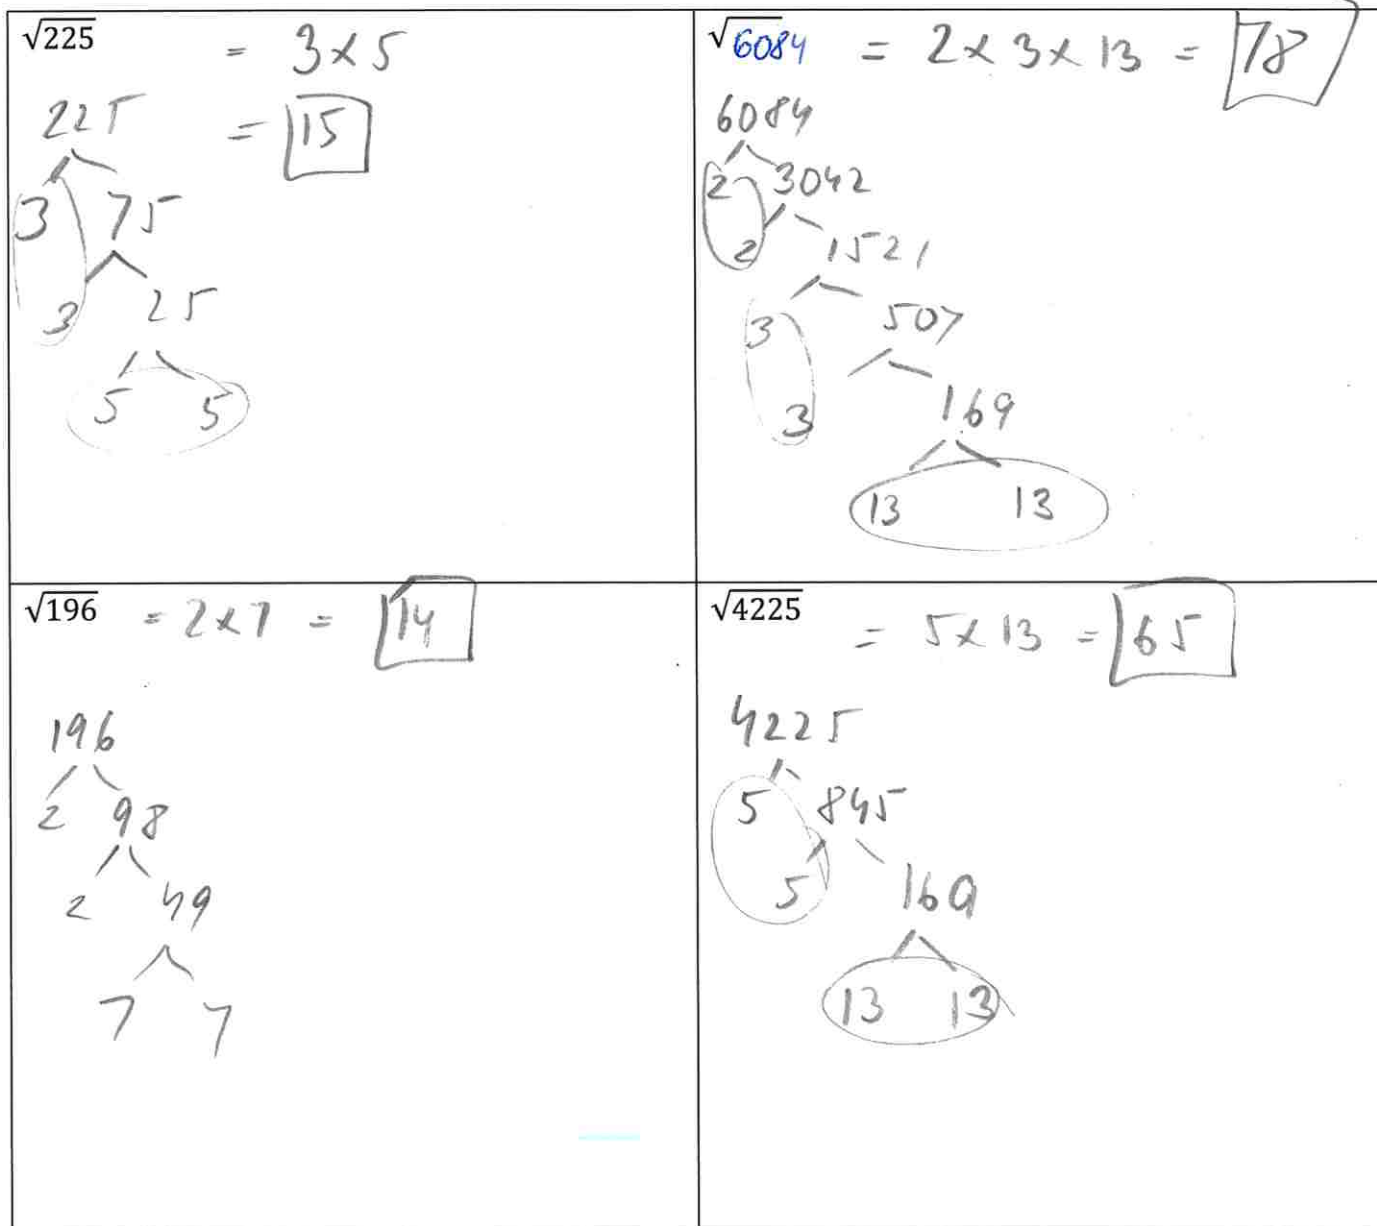 √225 = 3 × 5
= 15
225
3 75
3 25
5 5
√6084 = 2 × 3 × 13 = 78
6084
2 3042
2 1521
3 507
3 169
13 13
√196 = 2 × 7 = 14
196
2 98
2 49
7 7
√4225 = 5 × 13 = 65
4225
5 845
5 169
13 13